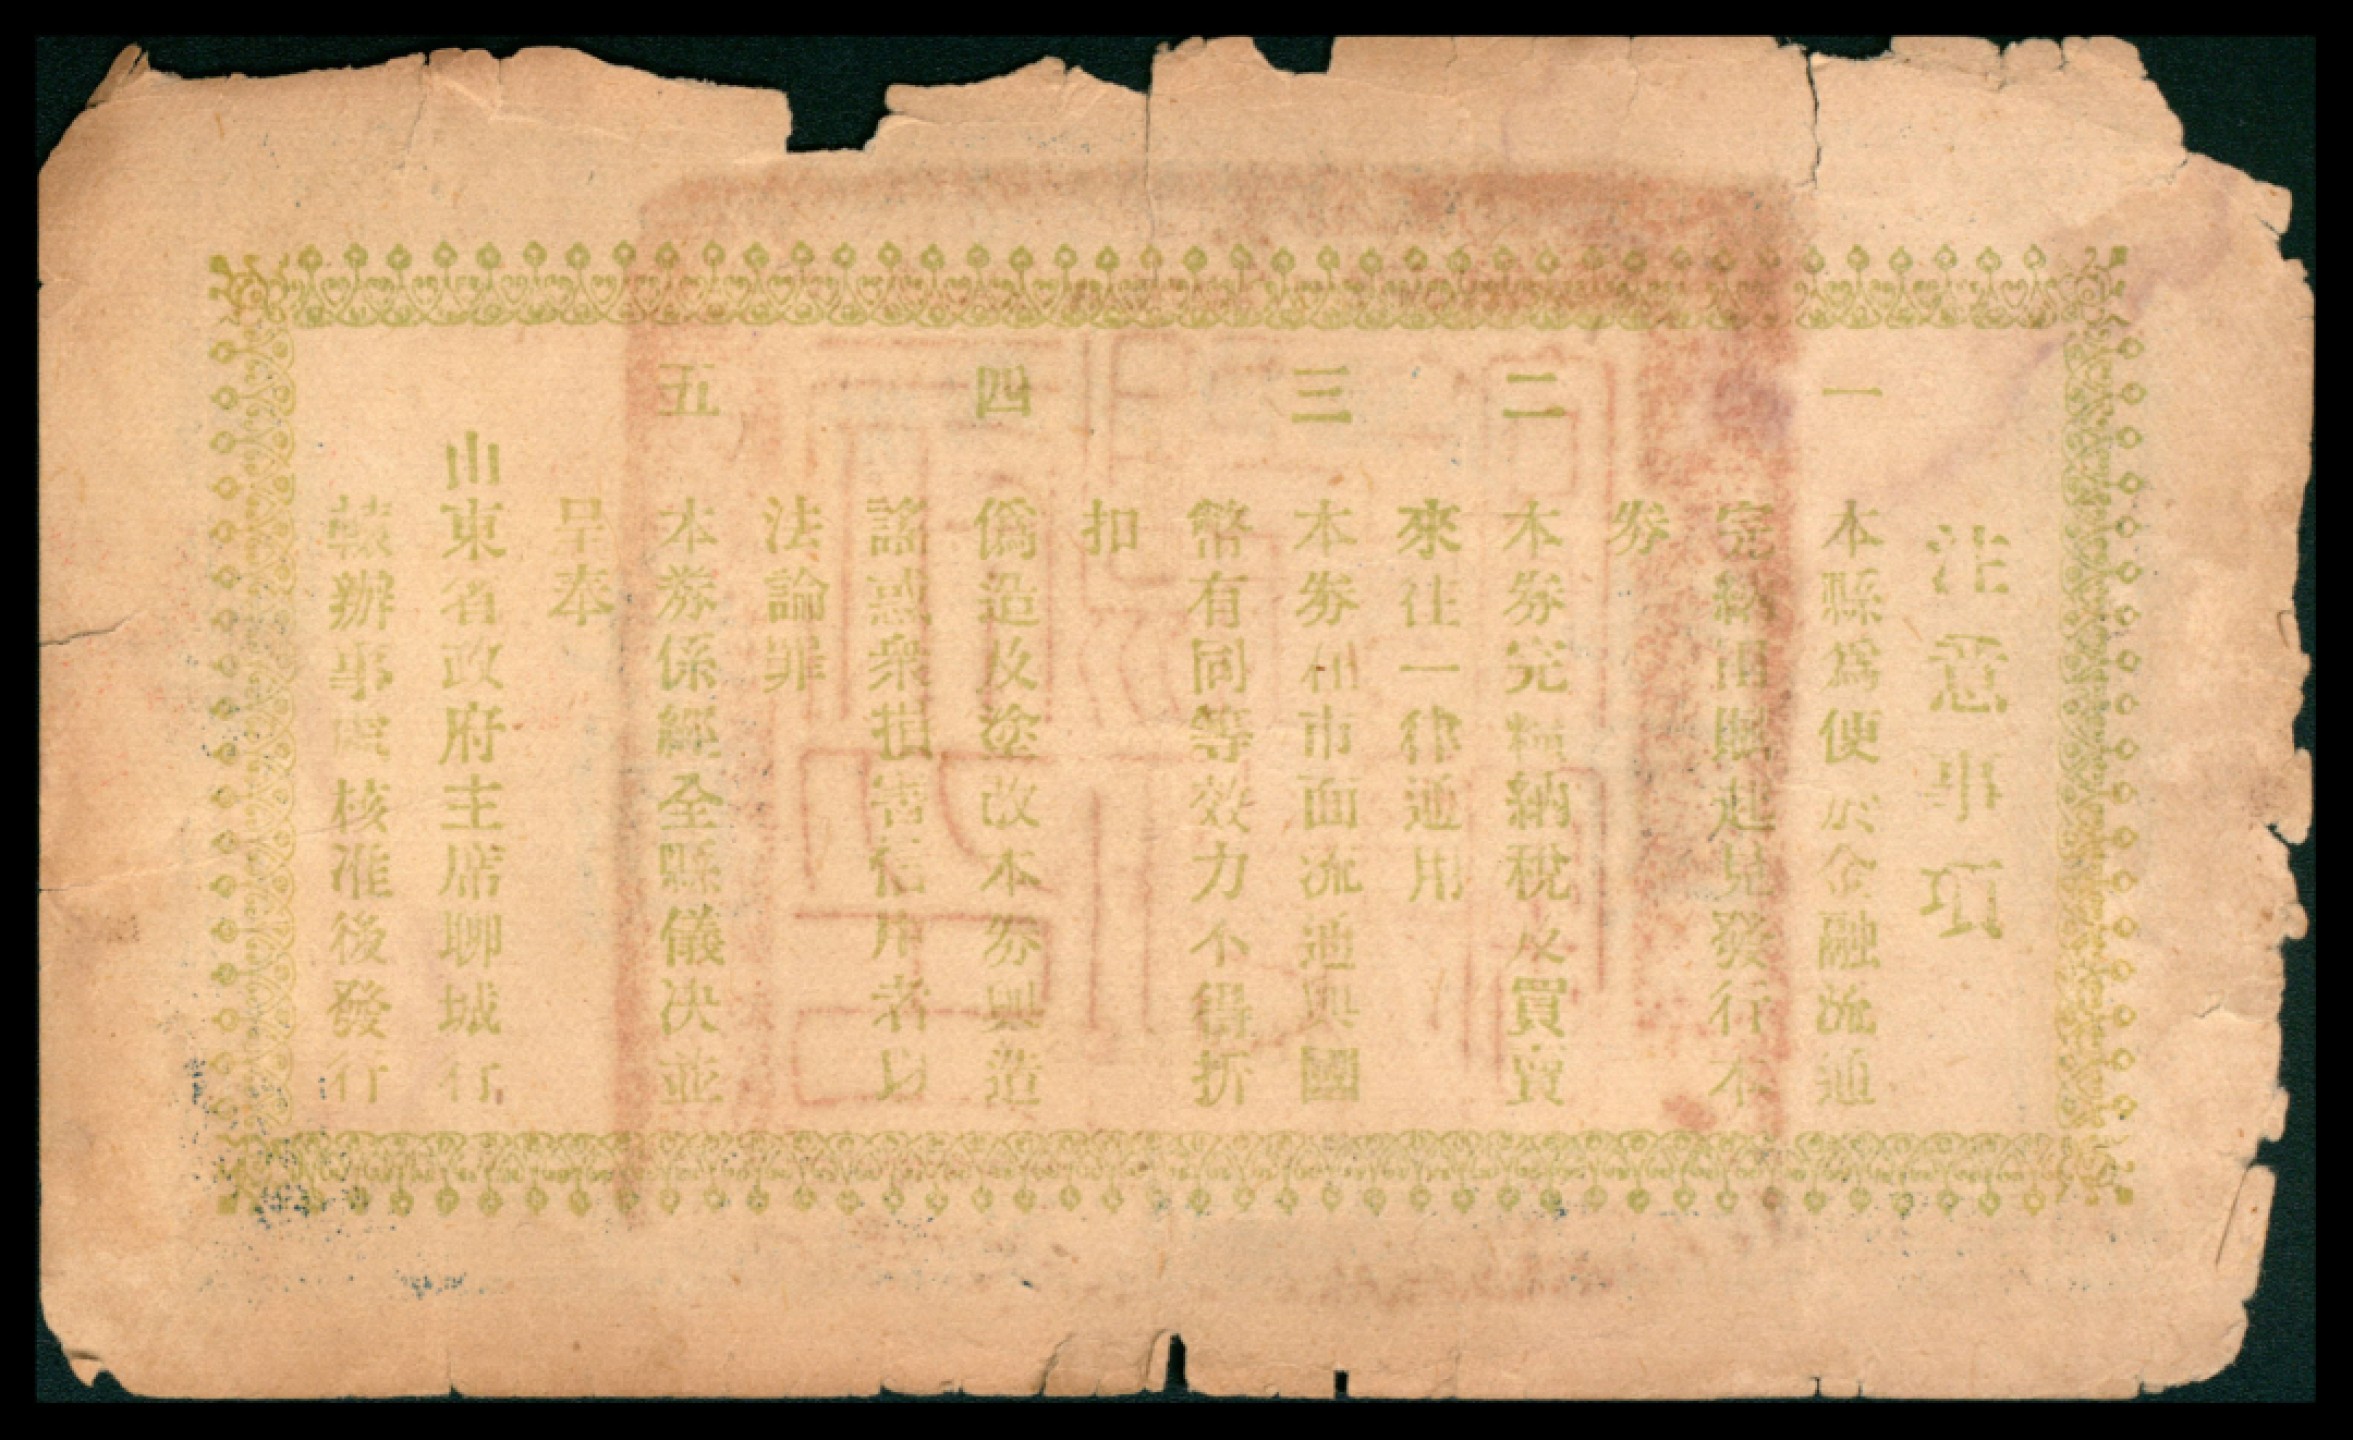 注意事項
一 本縣爲便於金融流通
完納田賦起見發行本
券
二 本券完糧納稅及買賣
來往一律通用
三 本券在市面流通與國
幣有同等效力不得折
扣
四 僞造及塗改本券與造
謠惑衆損害信用者以
法論罪
五 本券係經全縣儀决並
呈奉
山東省政府主席聊城行
轅辦事處核准後發行